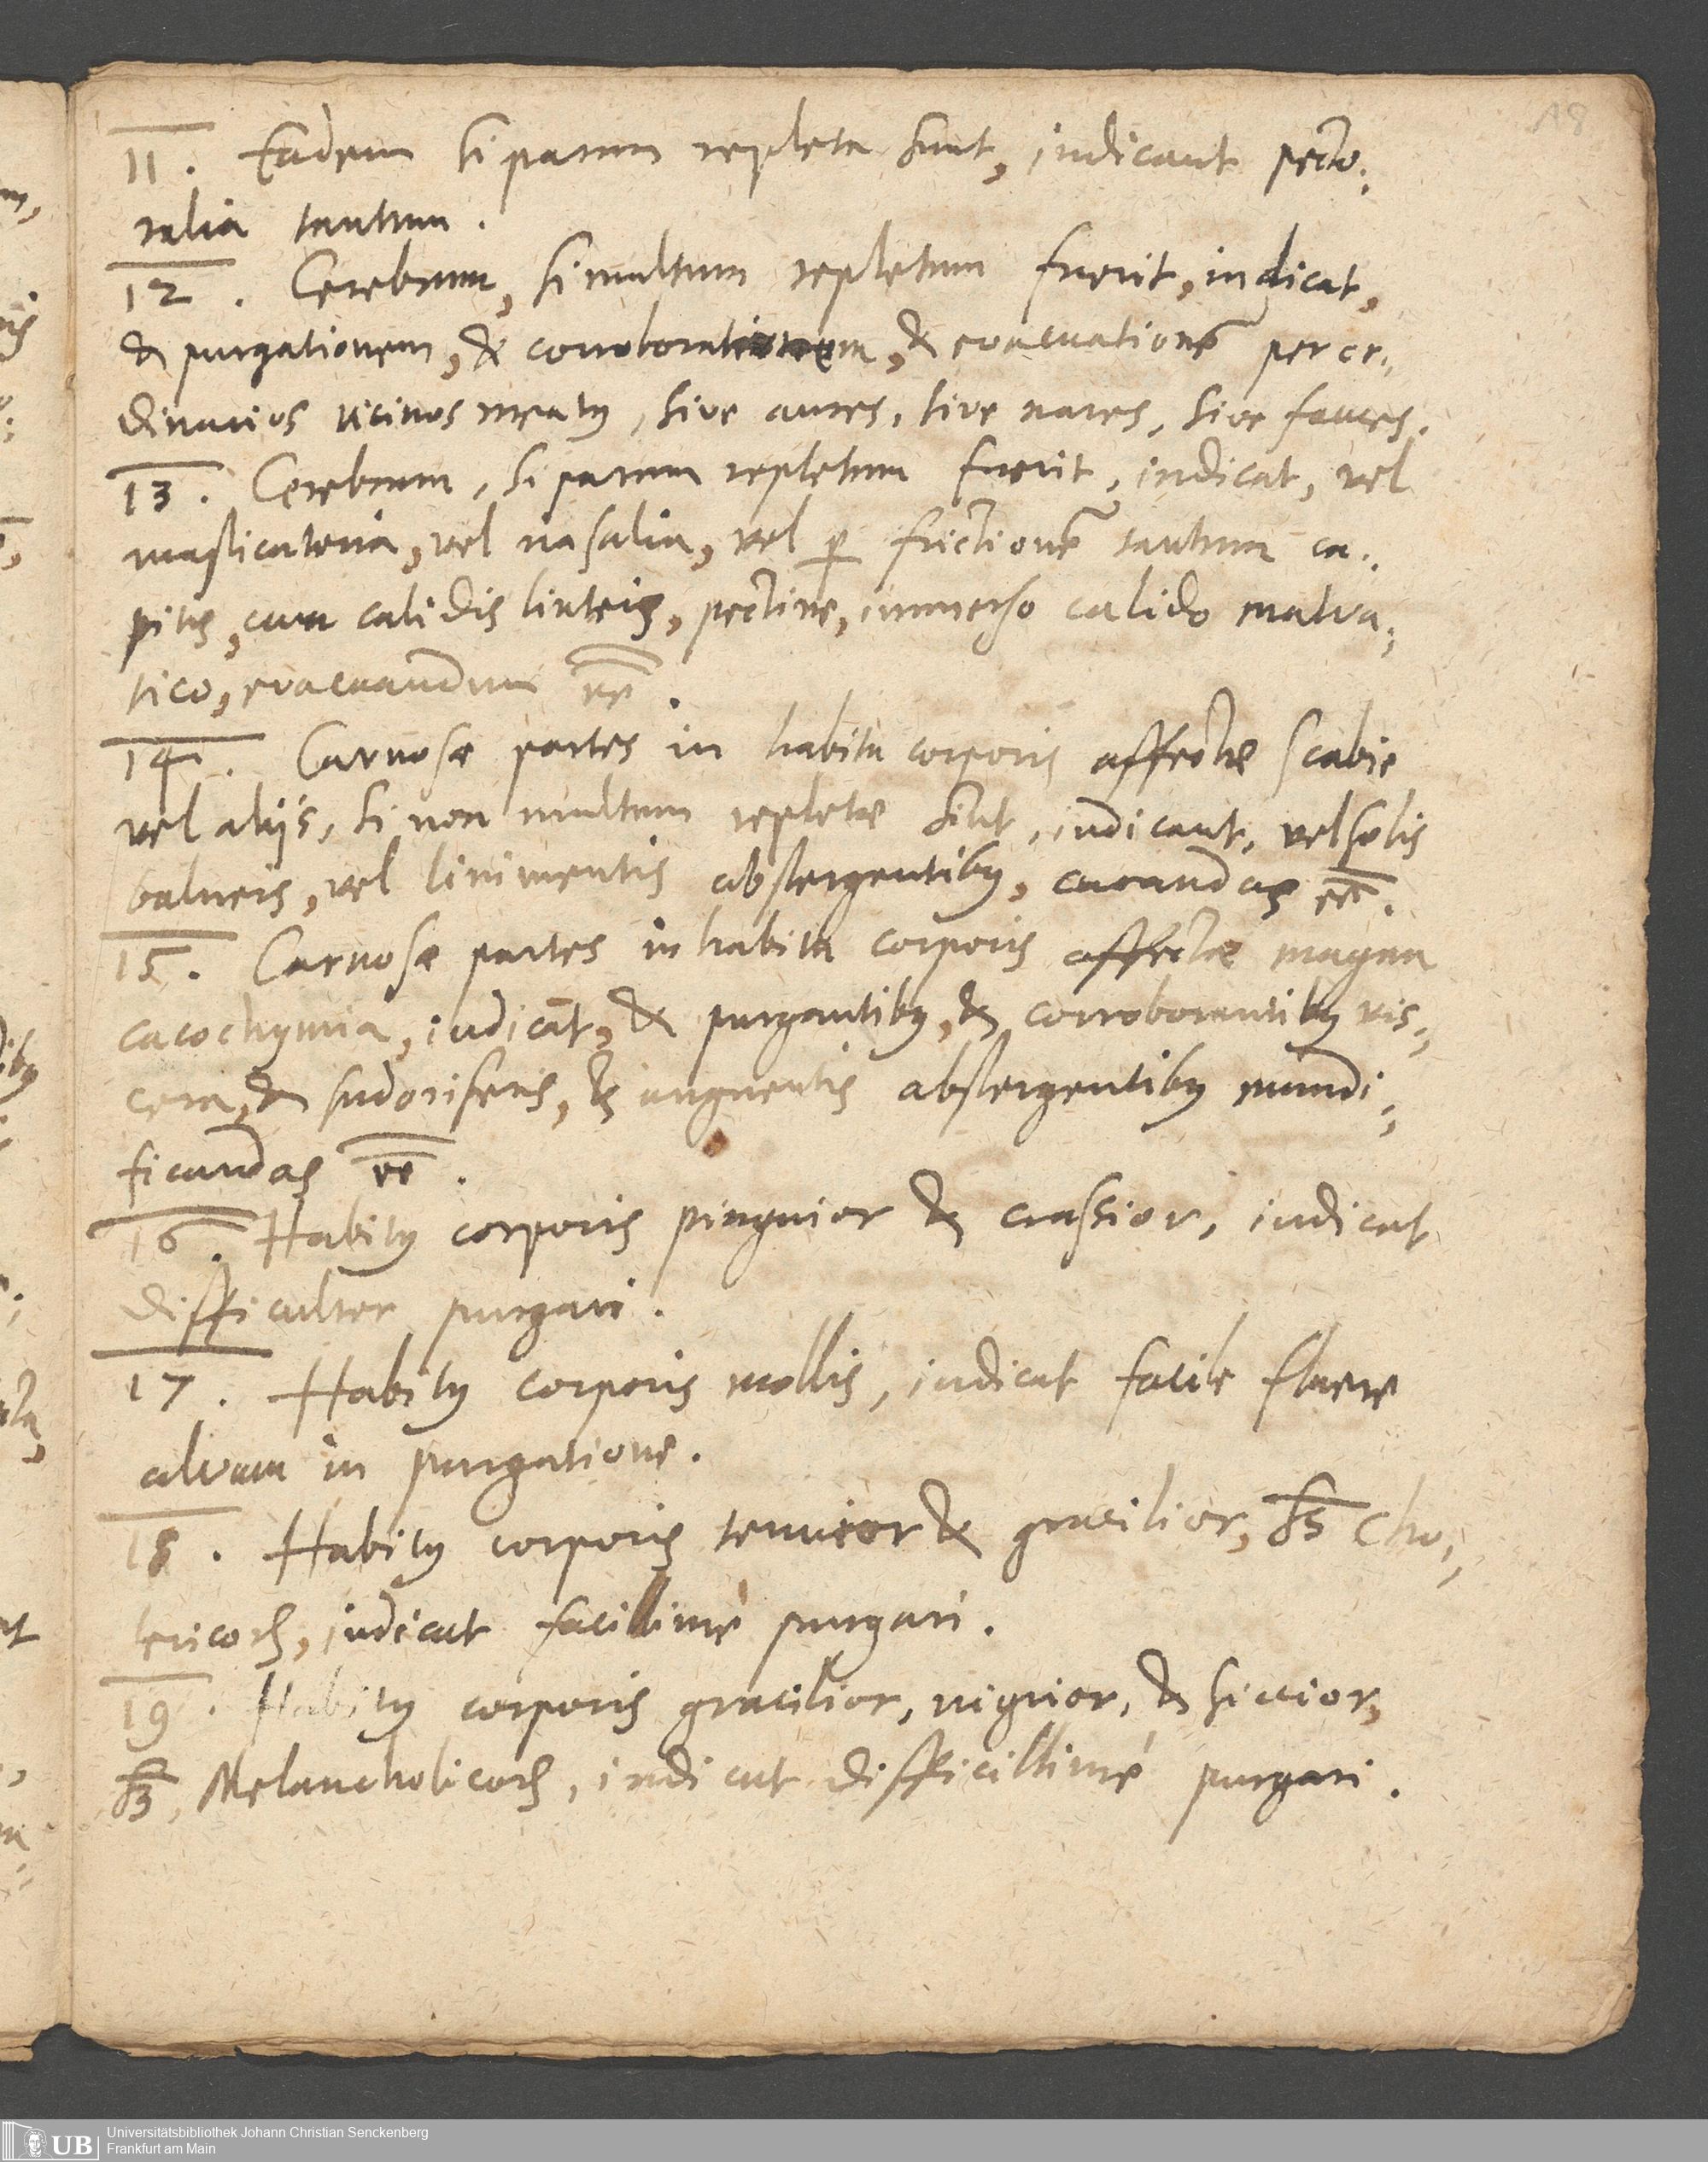 18
11. Eadem si parum repleta sunt, indicant pecto:
ralia tantum.
12. Cerebrum, si multum repletum fuerit, indicat,
& purgationem, & corroborationem, & evacuationẽ per or:
dinarios vicinos meatꝰ, sive aures, sive nares, sive fauces.
13. Cerebrum, si parum repletum fuerit, indicat, vel
masticatoria, vel nasalia, vel ꝑ frictionẽ tantum ca:
pitis, cum calidis linteis, pectine, immerso calido malva:
tico, evacuandum ee̅.
14. Carnosæ partes in habitu corporis affectæ scabie
vel alijs, si non multum repletæ sint, indicant, vel solis
balneis, vel linimentis abstergentibꝰ, curandas ee̅.
15. Carnosæ partes in habitu corporis affectæ magna
cacochymia, indicãt, & purgantibꝰ, & corroborantibꝰ vis:
cera, & sudoriferis, & unguentis abstergentibꝰ mundi:
ficandas ee̅.
16. Habitꝰ corporis pinguior & crassior, indicat
difficulter purgari.
17. Habitꝰ corporis mollis, indicat facile fluere
alvum in purgatione.
18. Habitꝰ corporis tenuior & gracilior, Cho:
lericoꝝ, indicat facillimè purgari.
19. Habitꝰ corporis gracilior, nigrior, & siccior,
Melancholicoꝝ, indicat difficillimè purgari.
UB
Universitätsbibliothek Johann Christian Senckenberg
Frankfurt am Main